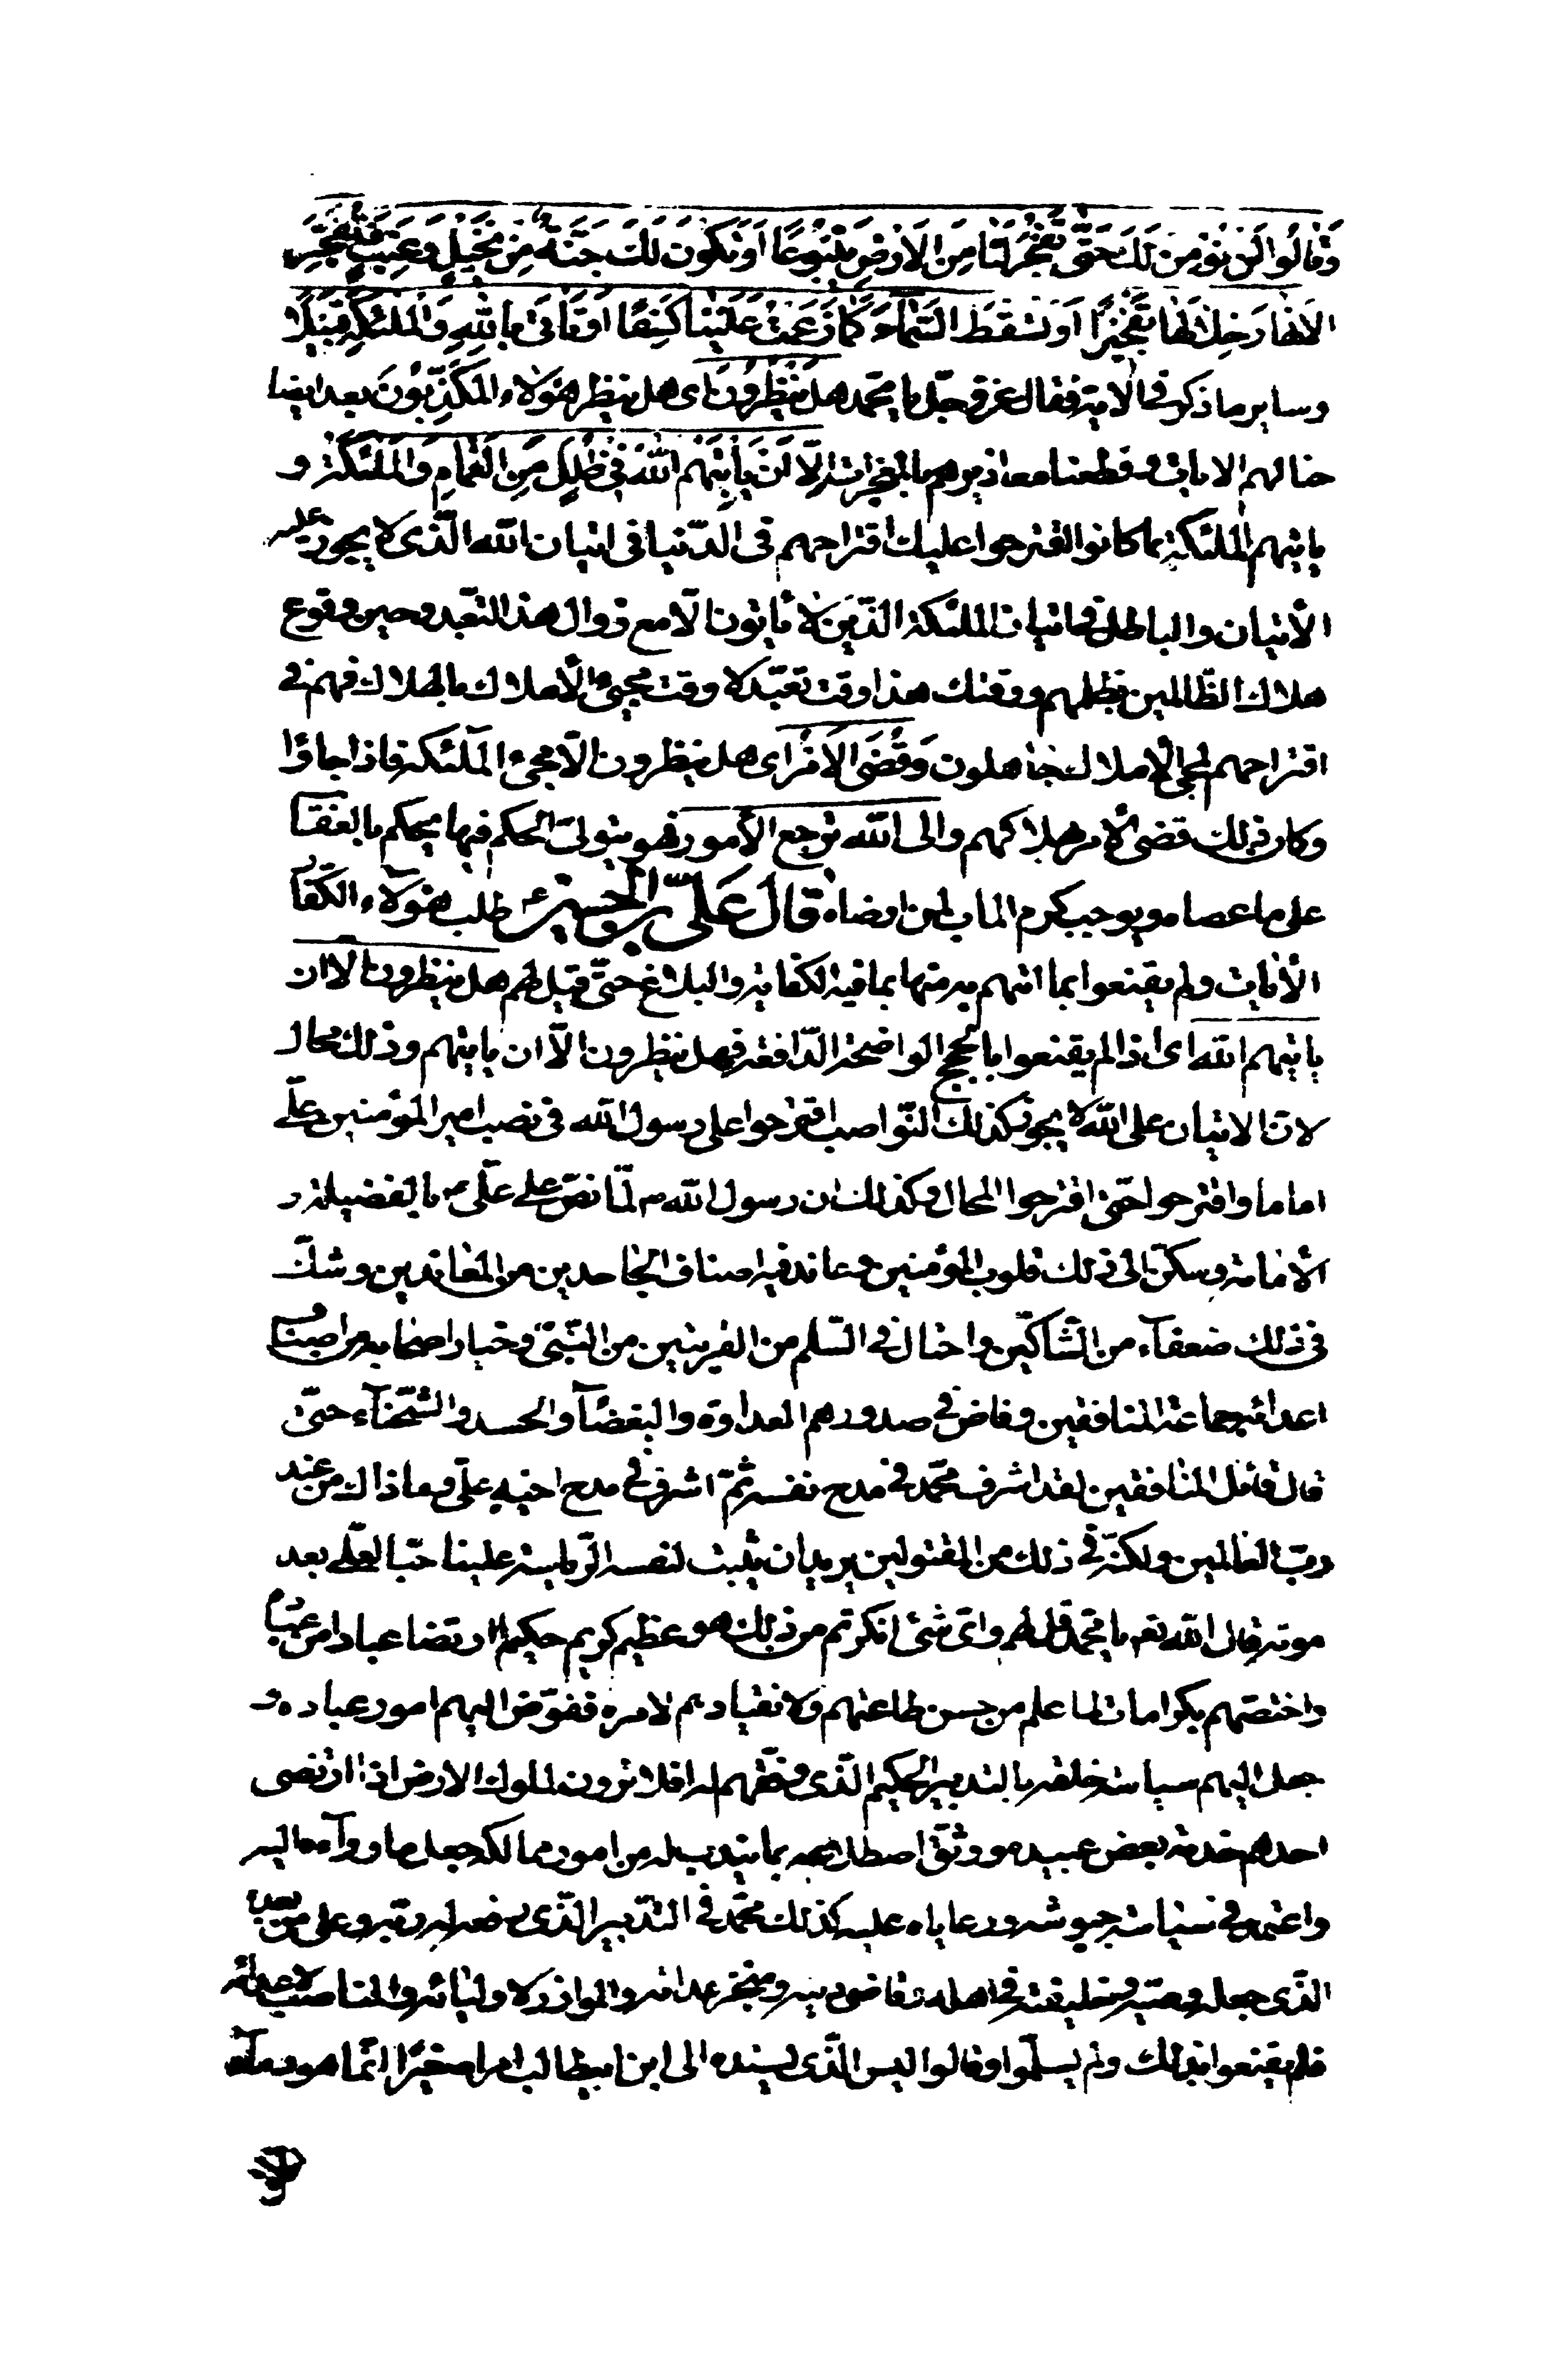 وَقَالُوا لَنْ نُؤْمِنَ لَكَ حَتَّى تَفْجُرَ لَنَا مِنَ الْاَرْضِ يَنْبُوعًا اَوْ تَكُونَ لَكَ جَنَّةٌ مِنْ نَخِيلٍ وَعِنَبٍ فَتُفَجِّرَ
الْاَنْهَارَ خِلَالَهَا تَفْجِيرًا اَوْ تُسْقِطَ السَّمَاءَ كَمَا زَعَمْتَ عَلَيْنَا كِسَفًا اَوْ تَاْتِىَ بِاللّٰهِ وَالْمَلٰئِكَةِ قَبِيلًا
وساير ما ذكر فى الاية فقال عز و جل يا محمد هل يَنْظُرُونَ اى هل ينظر هؤلاء المكذبون بعد ايضا
حنا لهم الايات و قطعنا معاذيرهم بالمعجزات اِلَّا اَنْ يَاْتِيَهُمُ اللّٰهُ فِى ظُلَلٍ مِنَ الْغَمَامِ وَالْمَلٰئِكَةُ و
ياتيهم الملئكة كما كانوا اقترحوا عليك اقتراحهم فى الدّنيا فى اتيان اللّٰه الّذى لا يجوز عليه
الأتيان والباطل فى اتيان الملئكة الذين لا يأتون الّا مع زوال هذا التعبد وحين وقوع
هلاك الظّالمين بظلمهم ووقتك هذا وقت تعبّد لا وقت مجئ الأملاك بالهلاك فهم فى
اقتراحهم لمجئ الأملاك جاهلون وَقُضِىَ الْاَمْرُ اى هل ينظرون الّا مجئ الملئكة فاذا جاؤا
وكان ذلك قضى الأمر بهلاكهم والى اللّٰه ترجع الأمور فهو يتولى الحكم فيها يحكم بالعقا
على ما عصاه ويوجب كرم الماب لمن ارضاه قَالَ عَلِىّ بن الحسين ع طلب هؤلاء الكفا
الأيات ولم يقنعوا بما اتهم به منها بما فيه الكفاية والبلاغ حتّى قيل لهم هل ينظرون الا ان
ياتيهم اللّٰه اى اذا لم يقنعوا بالحجج الواضحة الدّافعة فهل ينظرون الّا ان ياتيهم وذلك محال
لان الاتيان على اللّٰه لا يجوز كذلك النّواصب اقترحوا على رسول اللّٰه فى نصب امير المؤمنين علّى
اماما واقترحوا حتى اقترحوا المحال وكذلك ان رسول اللّٰه ص لمّا نصّ على علّى ع بالفضيلة و
الأمامة وسكن الى ذلك قلوب المؤمنين وعاند فيه اصناف الجاحدين من المعاندين وشكّ
فى ذلك ضعفآء من الشّاكّين واحتال فى السّلم من الفريقين من النّبىّ وخيار اصحابه ومن اصناف
اعدائه جماعة المنافقين وفاض فى صدورهم العداوة والبغضآء والحسد والشّحنآء حتّى
قال قائل المنافقين لقد اشرف محمّد فى مدح نفسه ثمّ اشرف فى مدح اخيه علّى وما ذاك من عند
ربّ العالمين ولكنّه فى ذلك من المقتولين يريد ان يثبت لنفسه الرّياسة علينا حيّا لعلّى بعد
موته قال اللّٰه تعم يا محمّد قل لهم واىّ شئ انكرتم من ذلك هو عظيم كريم حكيم ارتضا عبادا من عبا
واختصّهم بكرامات لما علم من حسن طاعتهم ولانقيادهم لامره ففوّض اليهم امور عباده و
جعل اليهم سياسة خلقه بالتدبير الحكيم الّذى وفّقهم له افلا ترون لملوك الارض اذا ارتضى
احدهم خدمة بعض عبيده ووثق اصطلاحه بما يندب له من امور ممالكه جعل ما وراء ه اليه
واعتمد فى سياسة جيوشه ورعاياه عليه كذلك محمّد فى التّدبير الّذى رفعه له ربّه وعلى من بعده
الّذى جعله وصيّه وخليفته فى اهله وقاضى دينه ومنجز عداته والموازر لاوليائه والمناصب لاعدائه
فلم يقنعوا بذلك ولم يسلّموا وقالوا ليس الّذى يسنده الى ابن ابيطالب امرا صغيرا انّما هو دمآء